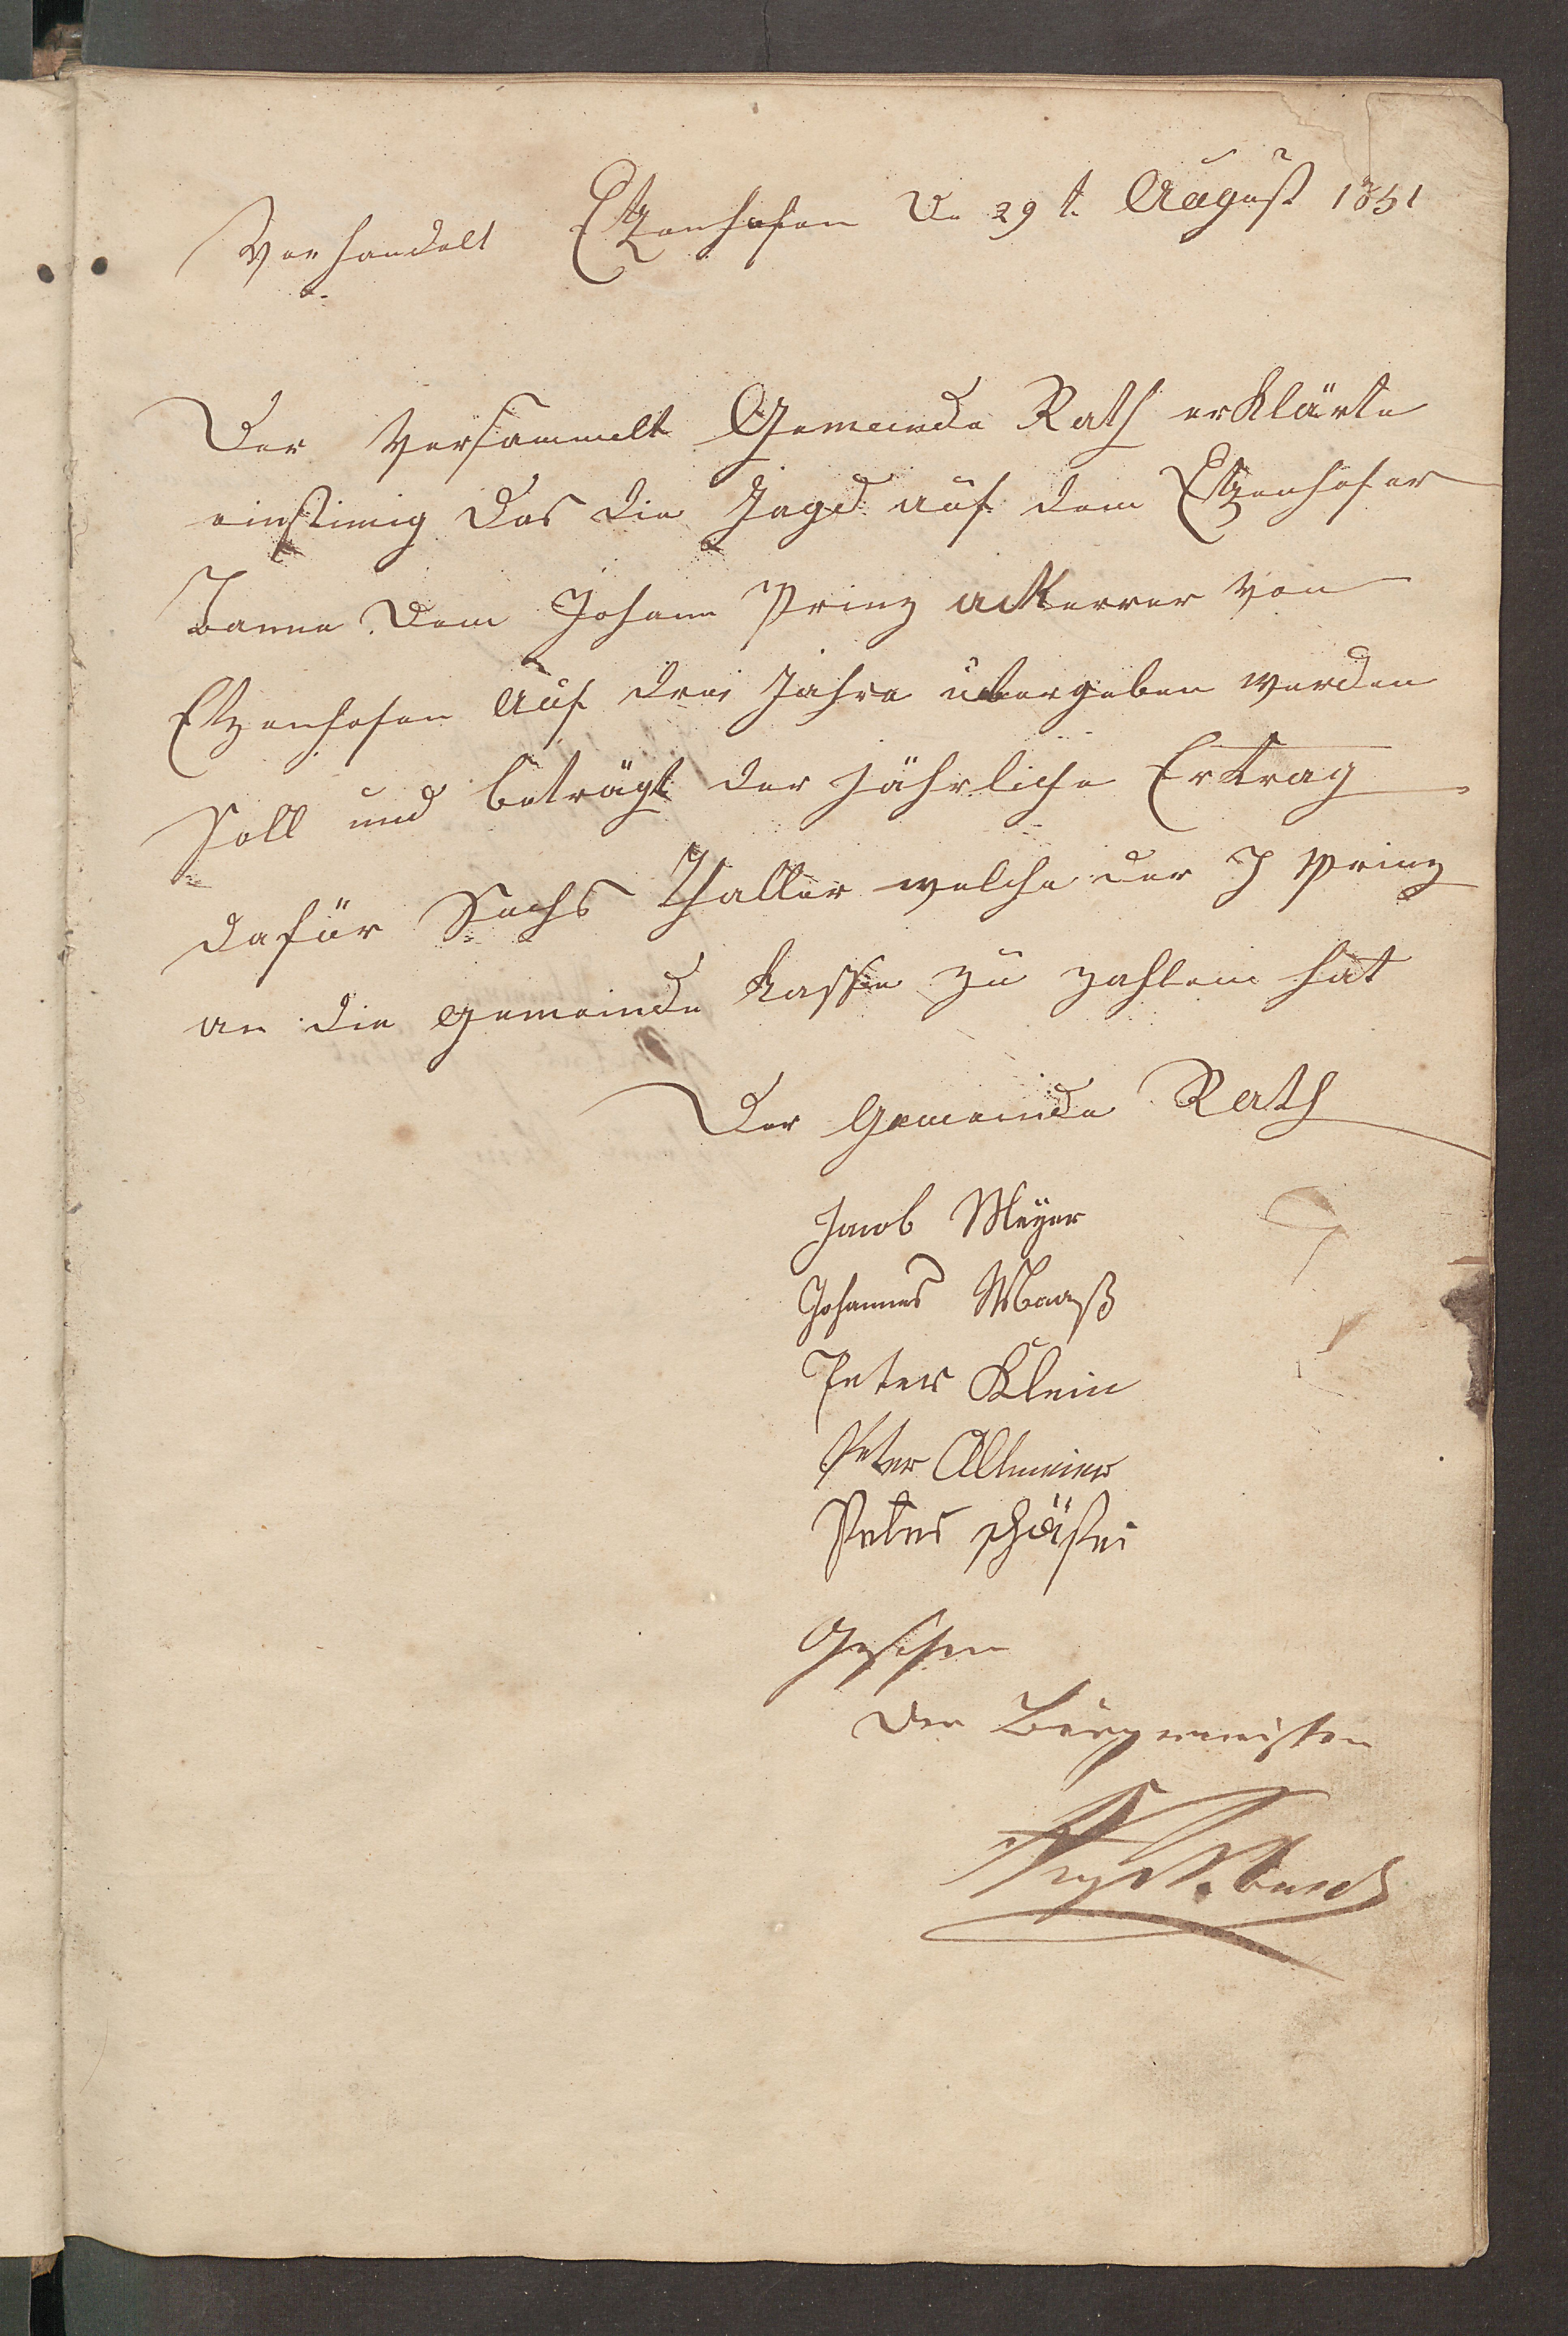 Verhandelt Etzenhofen D. 29 t. August 1851
Der Versammelt Gemeinde Rath erklärte
einstimig Das die Jagd auf dem Etzenhofer
Banne Dem Johann Prinz ackerer von
Etzenhofen Auf drei Jahre übergeben werden
Soll und beträgt der jährliche Ertrag
dafür Sechs Thaller welche der J Prinz
an die Gemeinde Kasse zu zahlen hat
Der Gemeinde Rath
Jacob Meÿer
Johannes Maaß
Peter Klein
Peter Altmeier
Peter schäfer
Gesehen
Der Bürgermeister